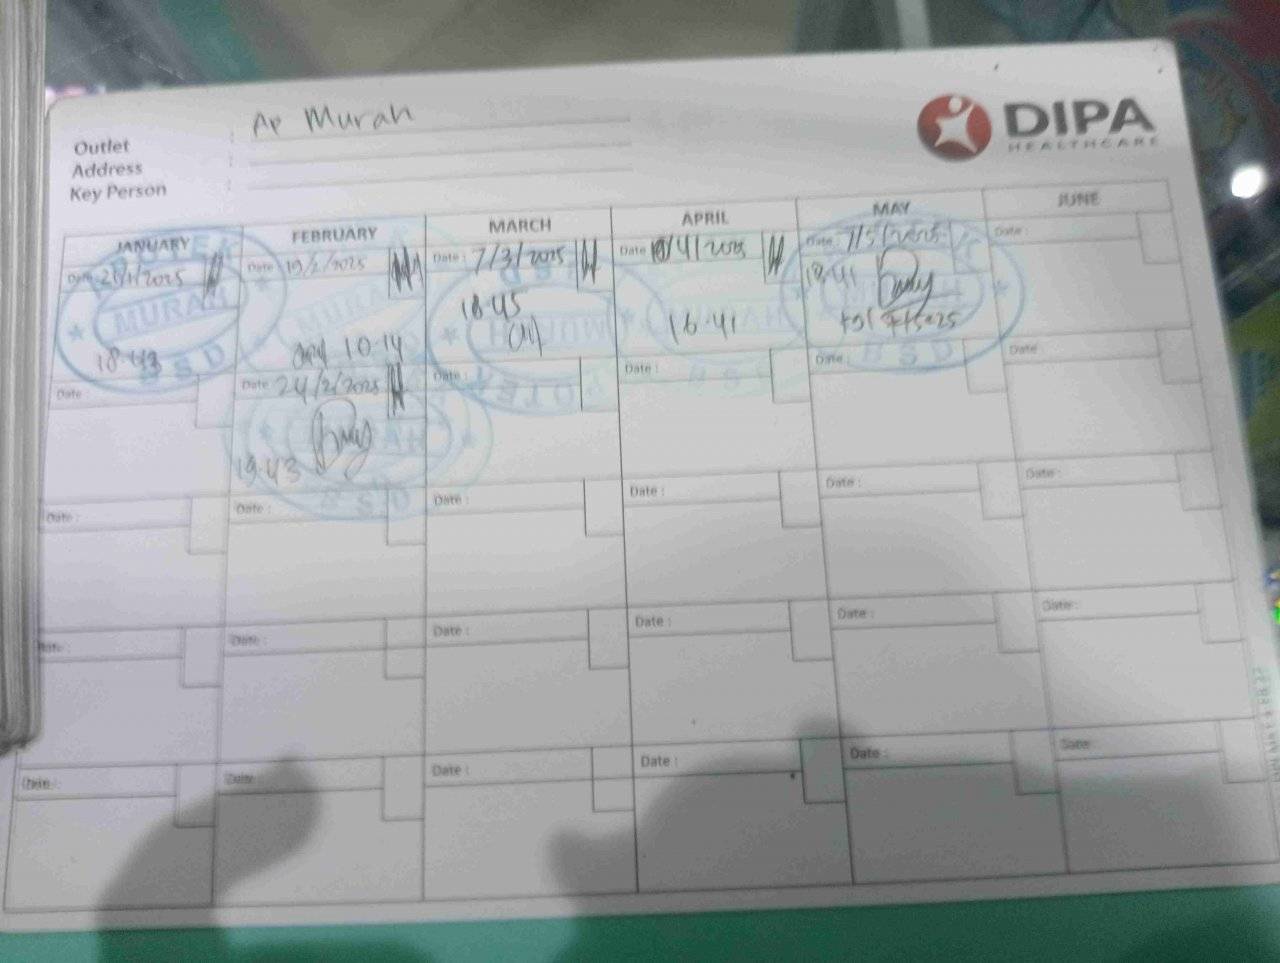 Outlet : Ap Murah
Address :
Key Person :
DIPA
HEALTHCARE
JANUARY FEBRUARY MARCH APRIL MAY JUNE
Date 19/2/2025
Date : 7/3/2025
Date 4/2025
Date: 7/5/2025
Date :
MURAH
BSD
18.43
10.14
18.45
16.41
18.41
Date 24/2/2025
19.43
Date : Date : Date : Date : Date :
Date : Date : Date : Date : Date : Date :
Date : Date : Date : Date : Date : Date :
Date : Date : Date : Date : Date : Date :